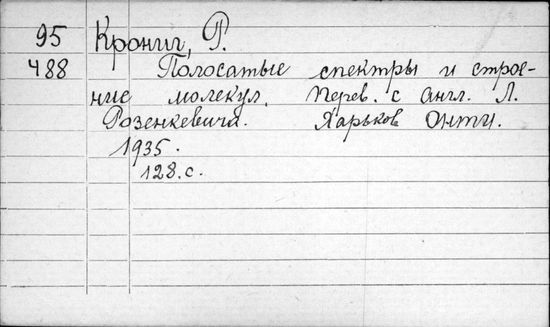 95 Крониг, Р.
488 Полосатые спектры и строе-
ние молекул. Перев. с англ. Л.
Розенкевича. Харьков ОНТИ.
1935.
128.с.